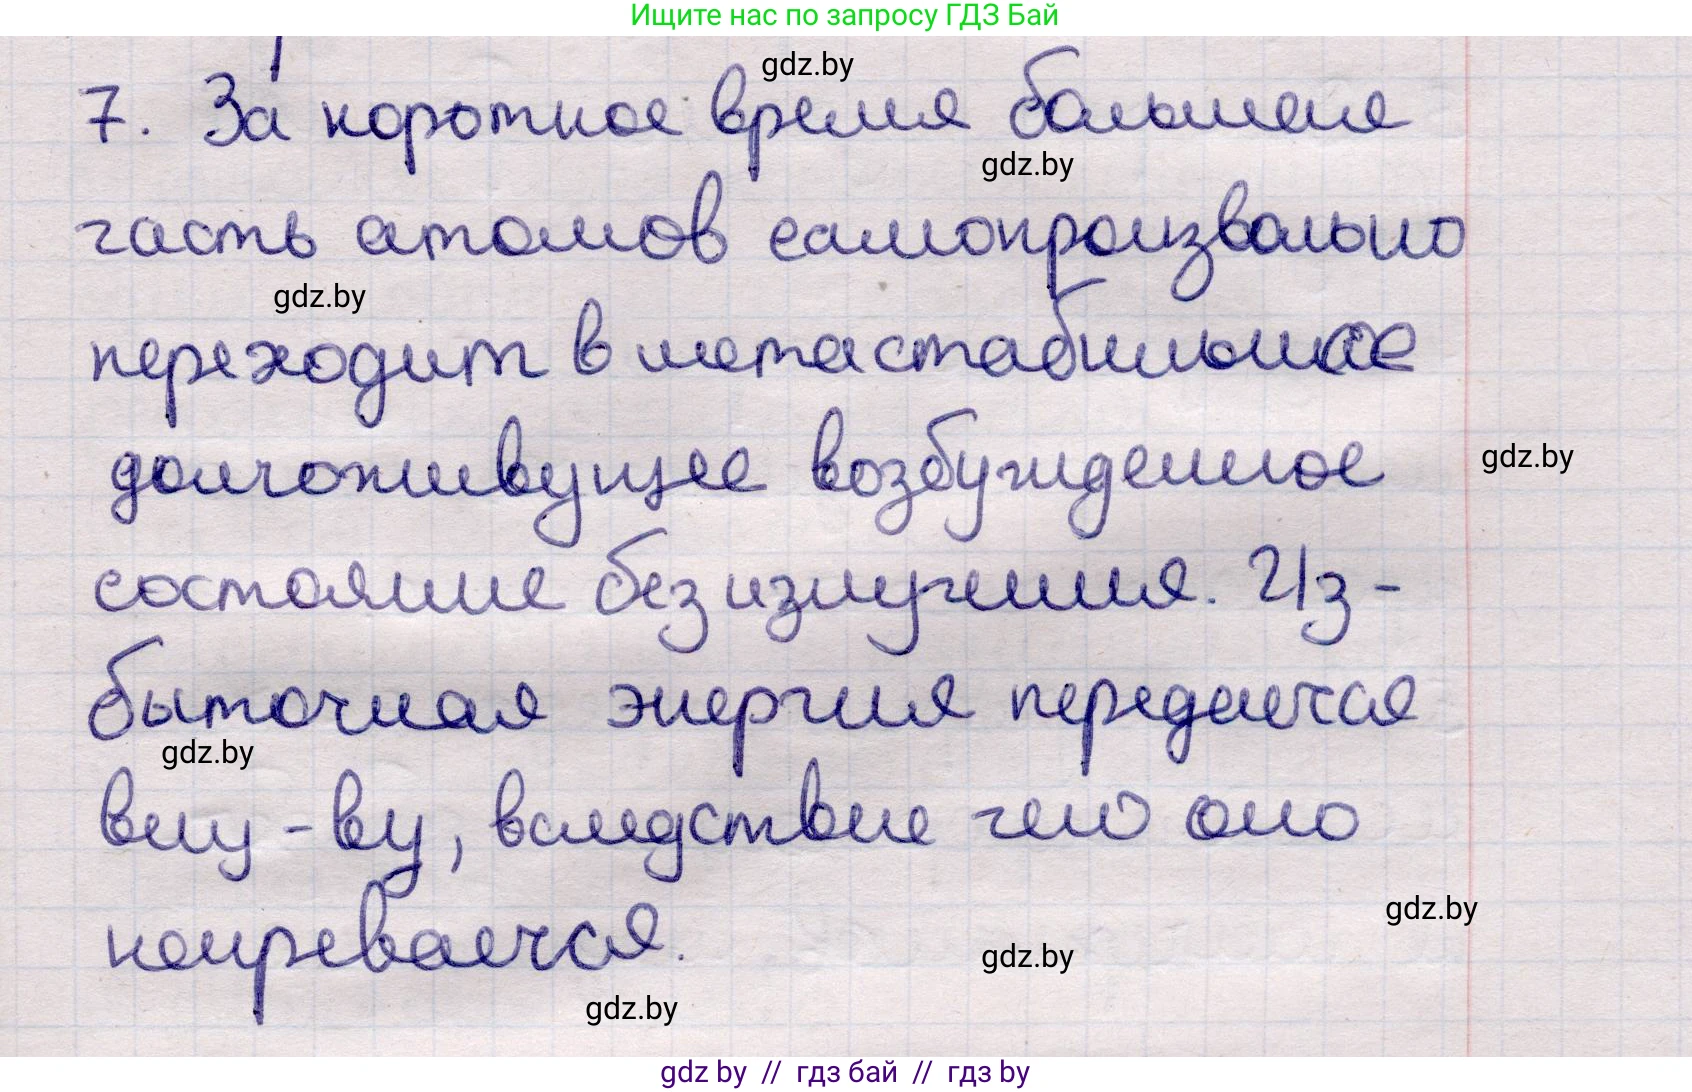 Ищите нас по запросу ГДЗ Бай
gdz.by
7. За короткое время большая
gdz.by
часть атомов самопроизвольно
gdz.by
переходит в метастабильное
долгоживущее возбужденное
gdz.by
состояние без излучения. Из-
быточная энергия передается
gdz.by
вещ-ву, вследствие чего оно
gdz.by
нагревается.
gdz.by
gdz.by
gdz by // гдз бай // gdz by